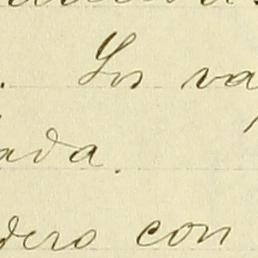 . Los va
ada.
dero con